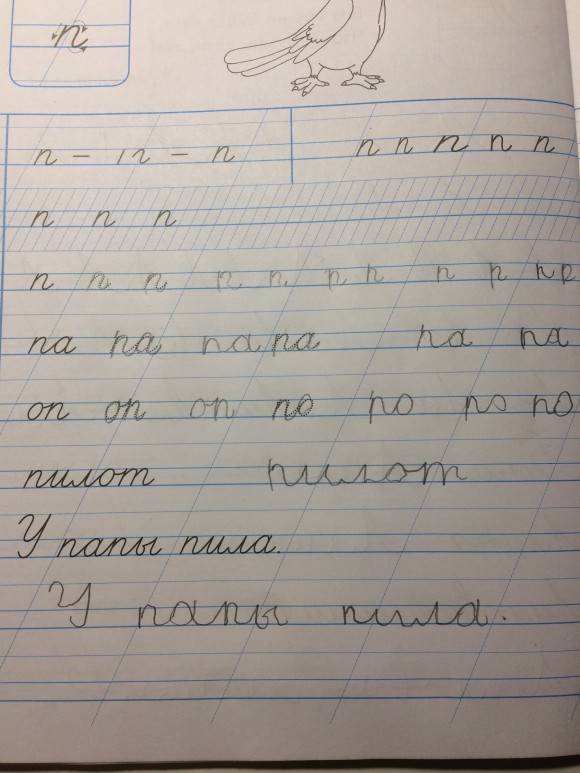 п
п - п - п п п п п п
п п п
п п п п п п п п п п п
па па па па па па
оп оп оп по по по по
пилот пилот
У папы пила.
У папы пила.